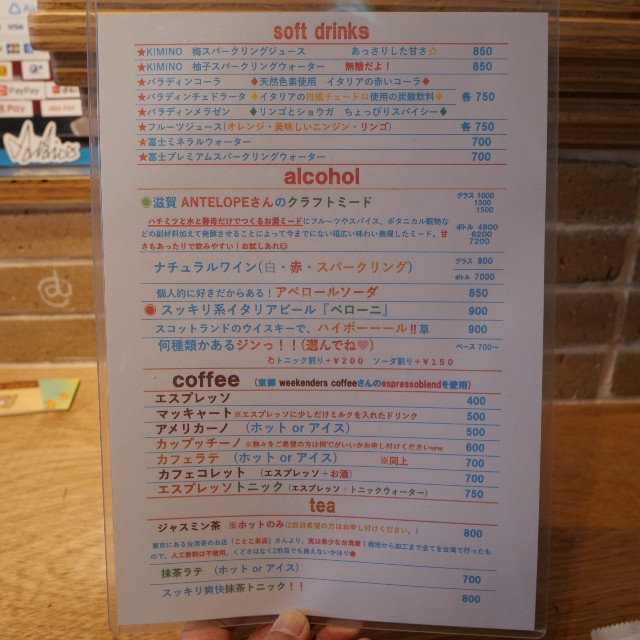 VISA
PayPay
Pay
soft drinks
★KIMINO 梅スパークリングジュース あっさりした甘さ☆ 850
★KIMINO 柚子スパークリングウォーター 無糖だよ！ 850
★パラディンコーラ ♦天然色素使用 イタリアの赤いコーラ♦
★パラディンチェドラータ ♦イタリアの柑橘チェードロ使用の炭酸飲料♦ 各 750
★パラディンメラゼン ♦リンゴとショウガ ちょっぴりスパイシー♦
★フルーツジュース(オレンジ・美味しいニンジン・リンゴ) 各 750
★富士ミネラルウォーター 700
★富士プレミアムスパークリングウォーター 700
alcohol
滋賀 ANTELOPEさんのクラフトミード グラス 1000
1300
1500
ハチミツと水と酵母だけでつくるお酒ミードにフルーツやスパイス、ボタニカル穀物な ボトル 4800
どの副材料加えて発酵させることによって今までにない幅広い味わい表現したミード。甘 6200
さもあったりで飲みやすい！お試しあれ 7200
ナチュラルワイン(白・赤・スパークリング) グラス 900
ボトル 7000
個人的に好きだからある！アペロールソーダ 850
スッキリ系イタリアビール『ペローニ』 900
スコットランドのウイスキーで、ハイボーーール!!草 900
何種類かあるジンっ！！(選んでね♥) ベース 700〜
トニック割り＋¥２００ ソーダ割り＋¥１５０
coffee (京都 weekanders coffeeさんのespressoblendを使用)
エスプレッソ 400
マッキャート ※エスプレッソに少しだけミルクを入れたドリンク 500
アメリカーノ (ホット or アイス) 500
カップッチーノ ※熱々をご希望の方は何でがいいかお申し付けくださいww 600
カフェラテ (ホット or アイス) ※同上 700
カフェコレット (エスプレッソ＋お酒) 700
エスプレッソトニック (エスプレッソ＋トニックウォーター) 750
tea
ジャスミン茶 ※ホットのみ(2煎目希望の方はお申し付けください。) 800
東京にある台湾茶のお店「とこと茶店」さんより。実は希少な台湾産！栽培から加工まで全てを台湾で行ったも
ので、人工香料は不使用。くどさはなく2煎目でも衰えないかほり
抹茶ラテ (ホット or アイス) 700
スッキリ爽快抹茶トニック！！ 800